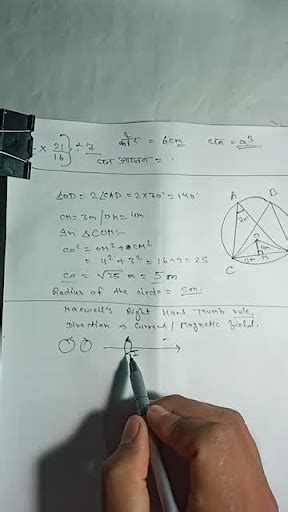 × 21/16} ÷ 7 कोर = 6cm घन = a³
घन आयतन = .
∠COD = 2∠CAD = 2×70° = 140°
CM = 3m / OM = 4m
In △COM:-
CO² = OM² + CM²
= 4² + 3² = 16+9 = 25
CO = √25 m = 5m
Radius of the circle = 5m.
A B
70°
O
4m
3m M
C
Maxwell's Right Hand Thumb rule.
Direction → Current / Magnetic field.